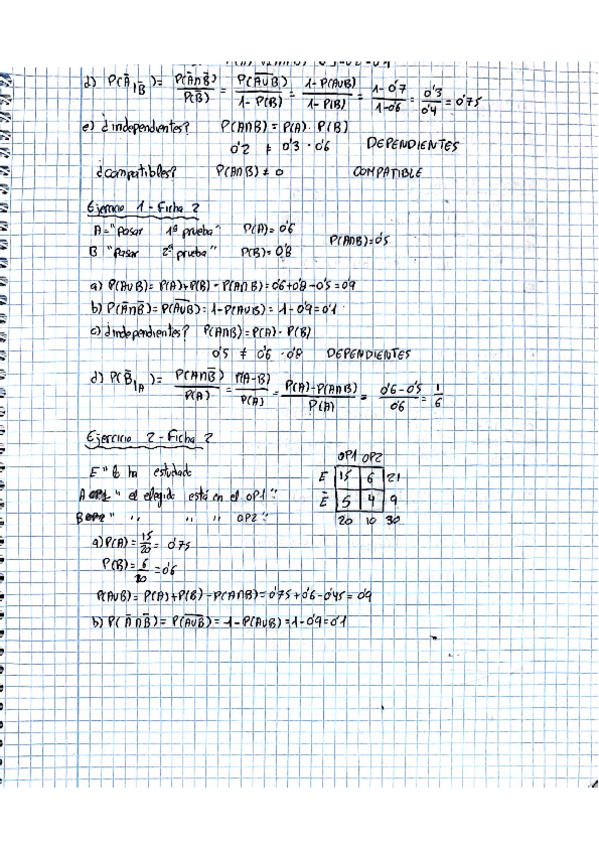 d) P(Ā/B̄) = P(Ā∩B̄)/P(B̄) = P(A∪B)‾/1-P(B) = 1-P(A∪B)/1-P(B) = 1-0'7/1-0'6 = 0'3/0'4 = 0'75
e) ¿independientes? P(A∩B) = P(A) · P(B)
0'2 ≠ 0'3 · 0'6 DEPENDIENTES
¿compatibles? P(A∩B) ≠ 0 COMPATIBLE
Ejercicio 1 - Ficha 2
A = "Pasar 1ª prueba" P(A) = 0'6
P(A∩B) = 0'5
B "Pasar 2ª prueba" P(B) = 0'8
a) P(A∪B) = P(A) + P(B) - P(A∩B) = 0'6 + 0'8 - 0'5 = 0'9
b) P(Ā∩B̄) = P(A∪B)‾ = 1 - P(A∪B) = 1 - 0'9 = 0'1
c) ¿independientes? P(A∩B) = P(A) · P(B)
0'5 ≠ 0'6 · 0'8 DEPENDIENTES
d) P(B̄/A) = P(A∩B̄)/P(A) = P(A-B)/P(A) = P(A)-P(A∩B)/P(A) = 0'6-0'5/0'6 = 1/6
Ejercicio 2 - Ficha 2
OP1 OP2
E " ha estudiado E 15 6 21
A " el elegido está en el OP1" Ē 5 4 9
B " " " " OP2" 20 10 30
a) P(A) = 15/20 = 0'75
P(B) = 6/10 = 0'6
P(A∪B) = P(A) + P(B) - P(A∩B) = 0'75 + 0'6 - 0'45 = 0'9
b) P(Ā∩B̄) = P(A∪B)‾ = 1 - P(A∪B) = 1 - 0'9 = 0'1